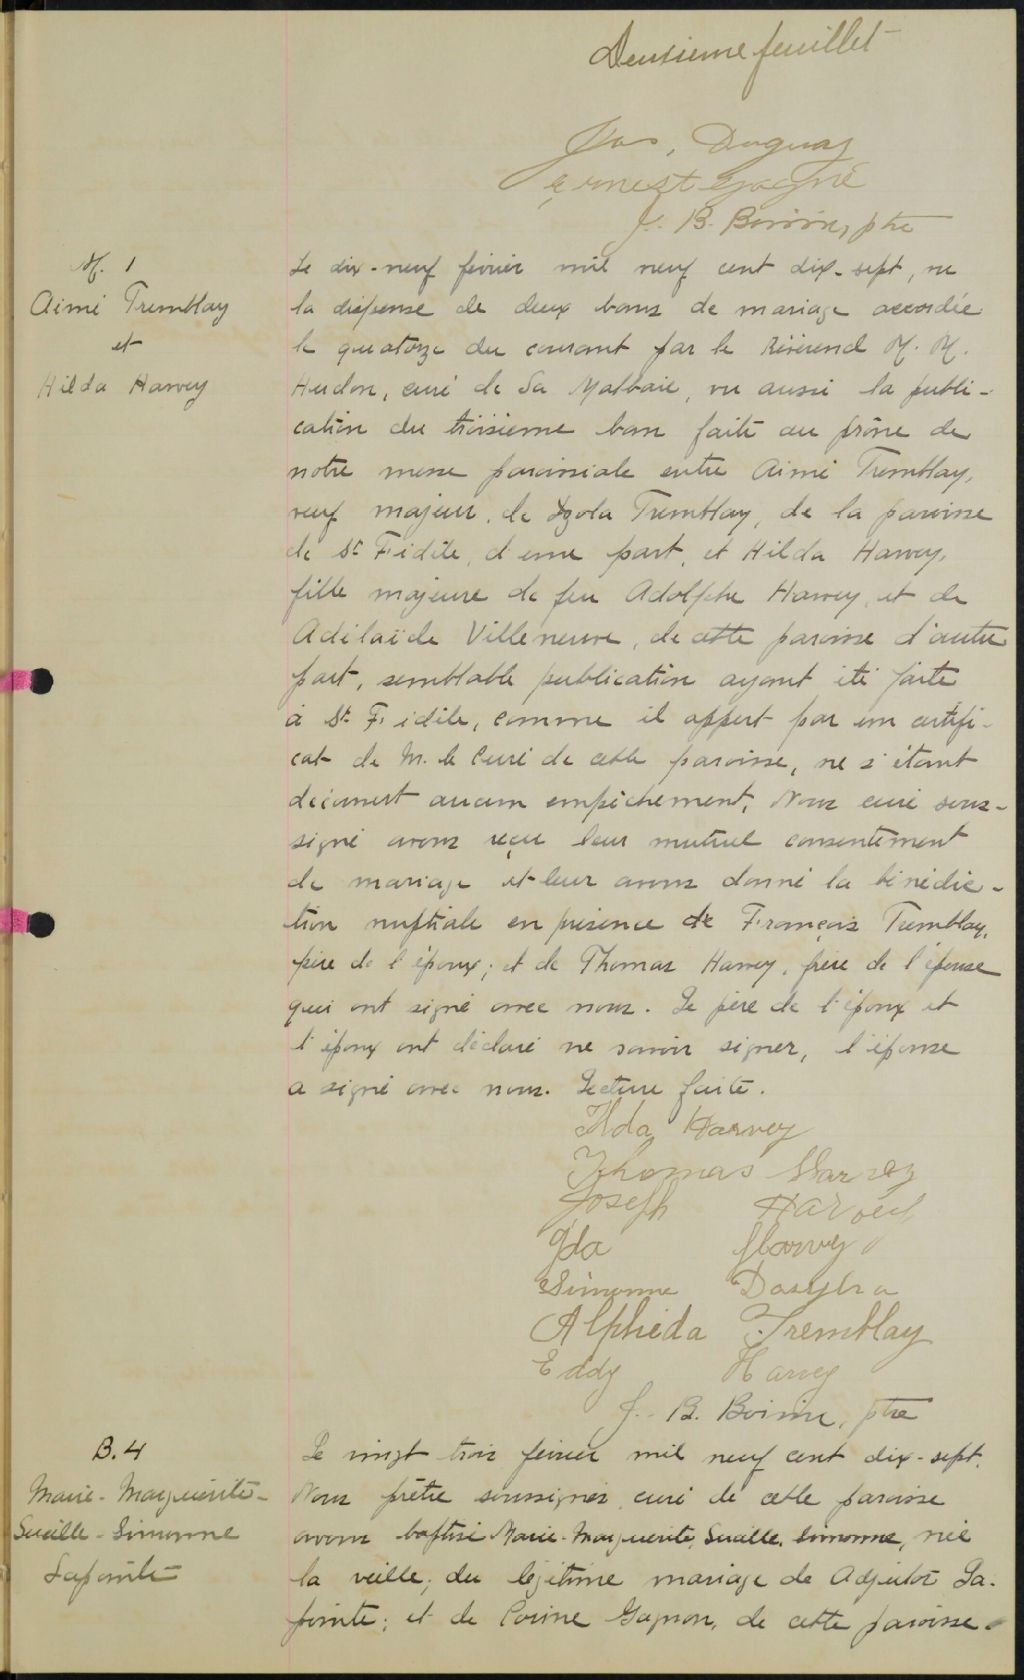 Deuxième feuillet
Jos, Duguay
Ernest Gagné
J. B. Boivin, ptre
M. 1
Aimé Tremblay
et
Hilda Harvey
Le dix-neuf février mil neuf cent dix-sept, vu
la dispense de deux bans de mariage accordée
le quatorze du courant par le Révérend M. M.
Hudon, curé de La Malbaie, vu aussi la publi-
cation du troisième ban faite au prône de
notre messe paroissiale entre Aimé Tremblay,
veuf majeur, de Tremblay, de la paroisse
de St Fidèle, d'une part, et Hilda Harvey,
fille majeure de feu Adolphe Harvey, et de
Adélaïde Villeneuve, de cette paroisse d'autre
part, semblable publication ayant été faite
à St. Fidèle, comme il appert par un certifi-
cat de M. le Curé de cette paroisse, ne s'étant
découvert aucun empêchement, Nous curé sous-
signé avons reçu leur mutuel consentement
de mariage et leur avons donné la bénédic-
tion nuptiale en présence de François Tremblay,
père de l'époux; et de Thomas Harvey, frère de l'épouse
qui ont signé avec nous. Le père de l'époux et
l'époux ont déclaré ne savoir signer, l'épouse
a signé avec nous. Lecture faite.
Ilda Harvey
Thomas Harvey
Joseph Harvey
Ida Harvey
Simonne Dasylva
Alphéda Tremblay
Eddy Harvey
J. B. Boivin, ptre
B. 4
Marie-Marguerite-
Lucille-Simonne
Lapointe
Le vingt trois février mil neuf cent dix-sept,
Nous prêtre soussigné, curé de cette paroisse
avons baptisé Marie-Marguerite, Lucille, Simonne, née
la veille, du légitime mariage de Adjutor La-
pointe; et de Corine Gagnon, de cette paroisse.